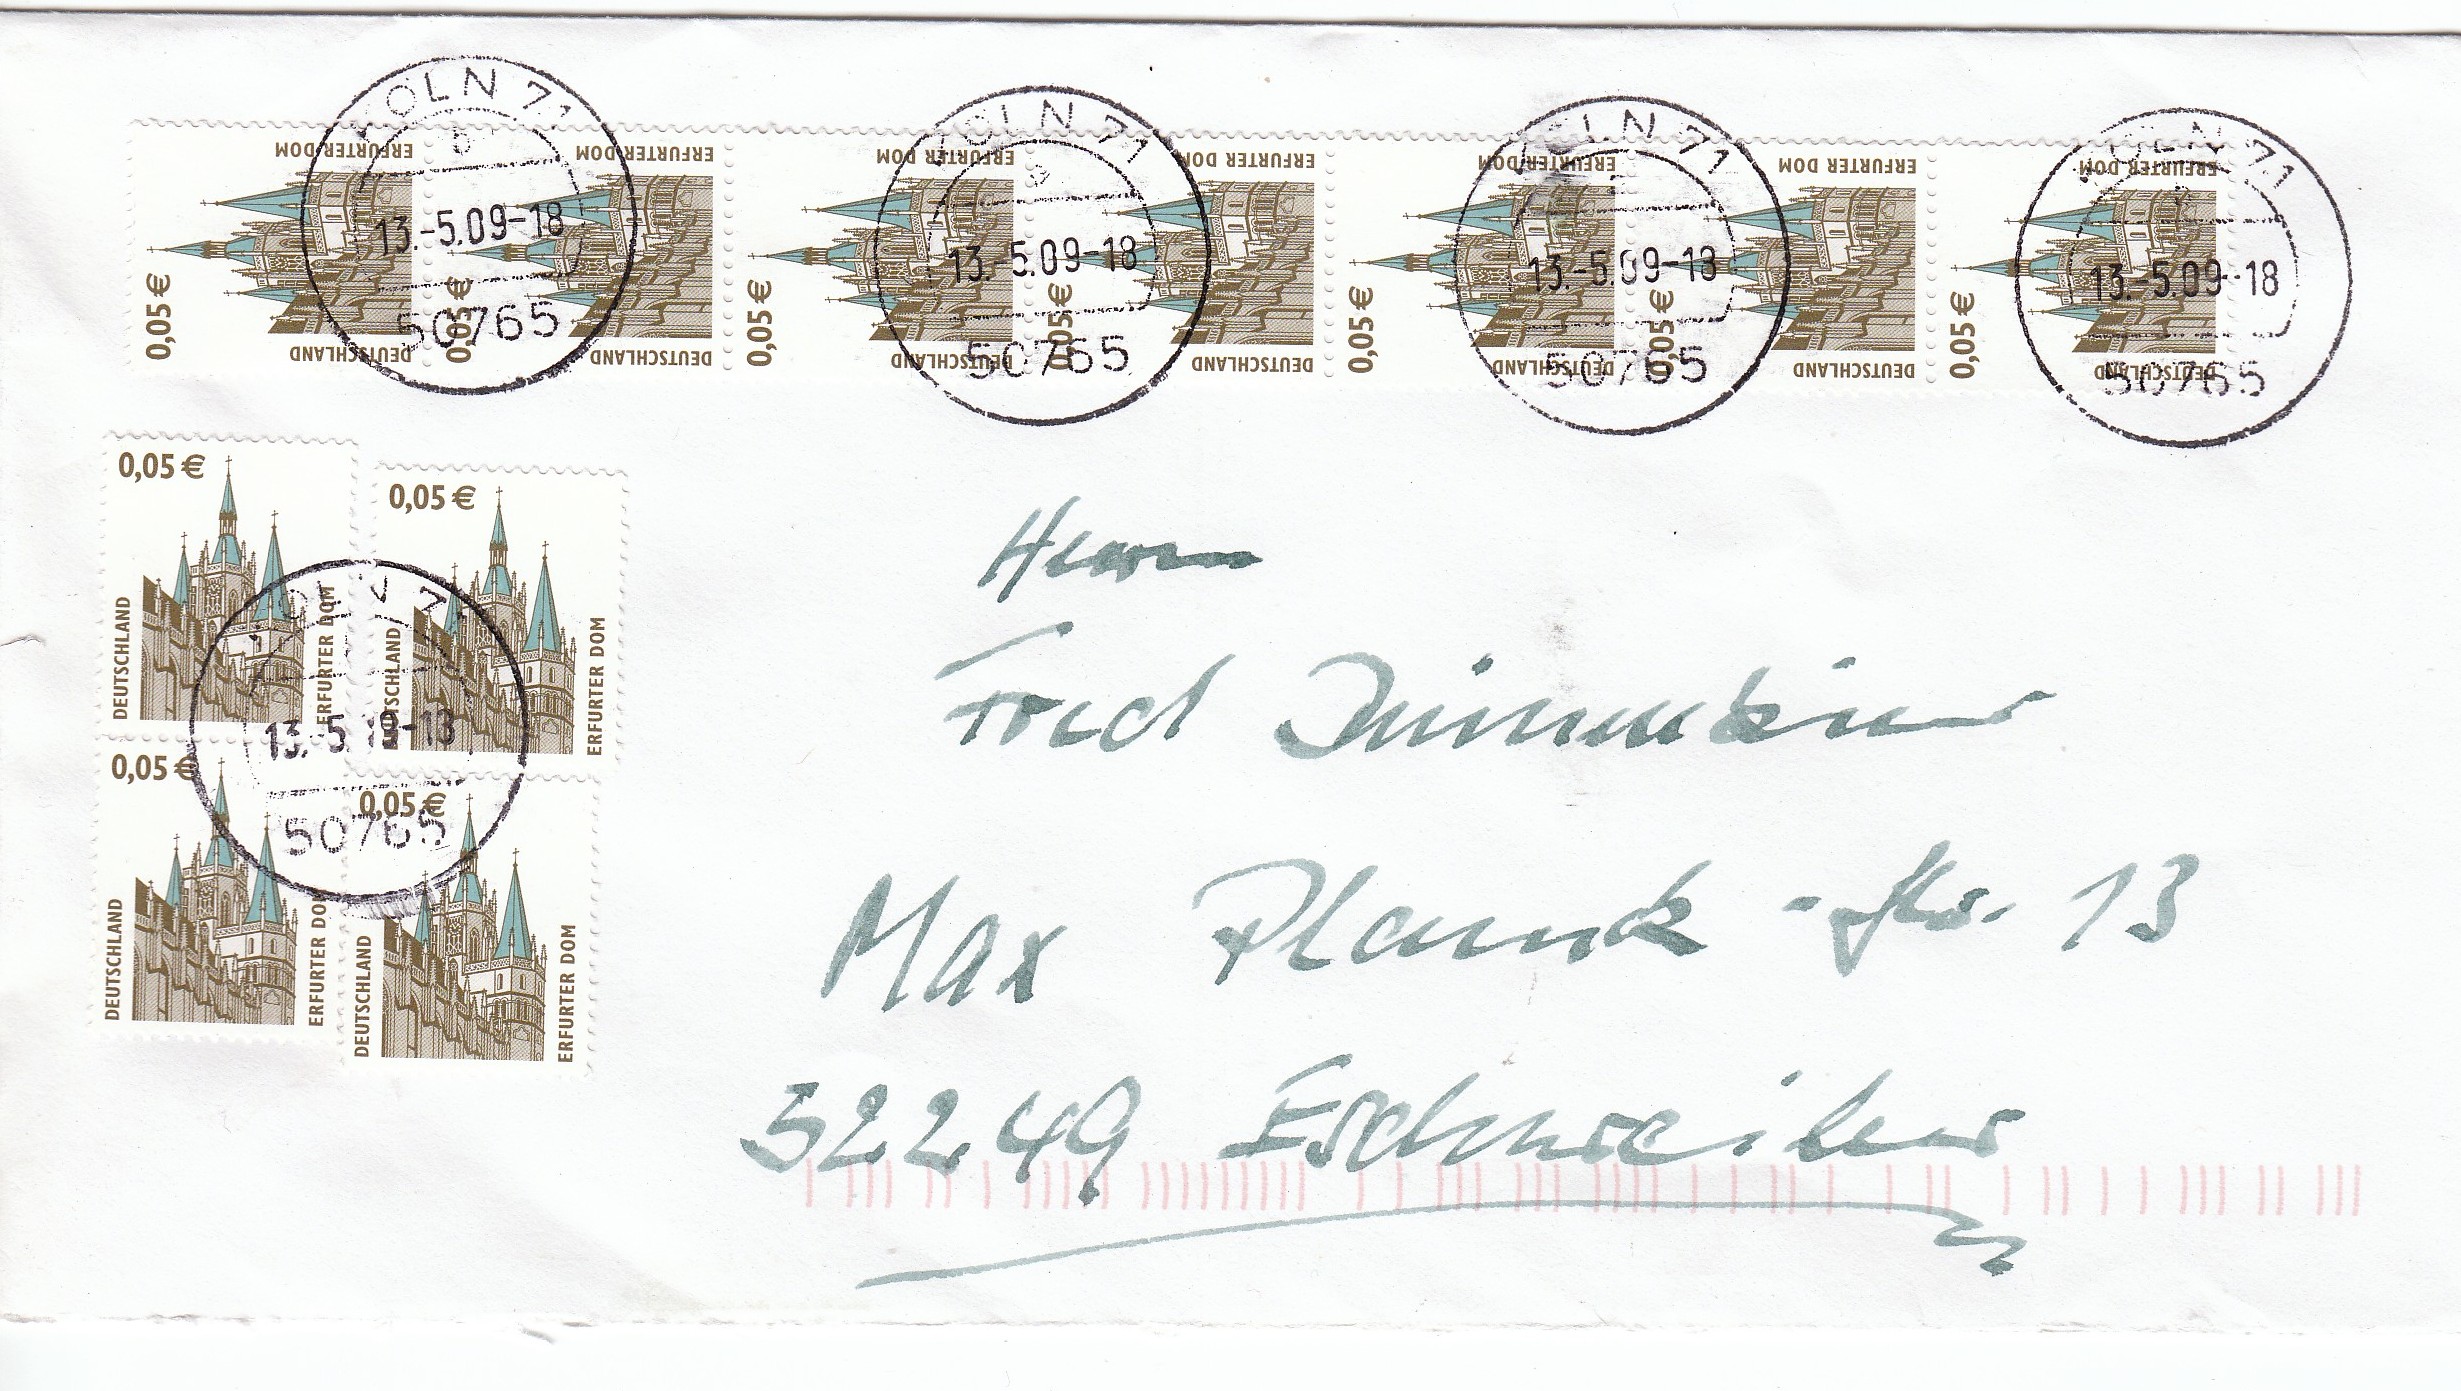 KÖLN 71
b
13.-5.09-18
50765
KÖLN 71
13.-5.09-18
50765
KÖLN 71
13.-5.09-18
50765
KÖLN 71
13.-5.09-18
50765
0,05 €
DEUTSCHLAND
ERFURTER DOM
0,05 €
DEUTSCHLAND
ERFURTER DOM
0,05 €
DEUTSCHLAND
ERFURTER DOM
0,05 €
DEUTSCHLAND
ERFURTER DOM
0,05 €
DEUTSCHLAND
ERFURTER DOM
0,05 €
DEUTSCHLAND
ERFURTER DOM
0,05 €
DEUTSCHLAND
ERFURTER DOM
0,05 €
DEUTSCHLAND
ERFURTER DOM
0,05 €
DEUTSCHLAND
ERFURTER DOM
0,05 €
DEUTSCHLAND
ERFURTER DOM
0,05 €
DEUTSCHLAND
ERFURTER DOM
KÖLN 71
50765
Herrn
Fred
Max Planck-Str. 13
52249 Eschweiler